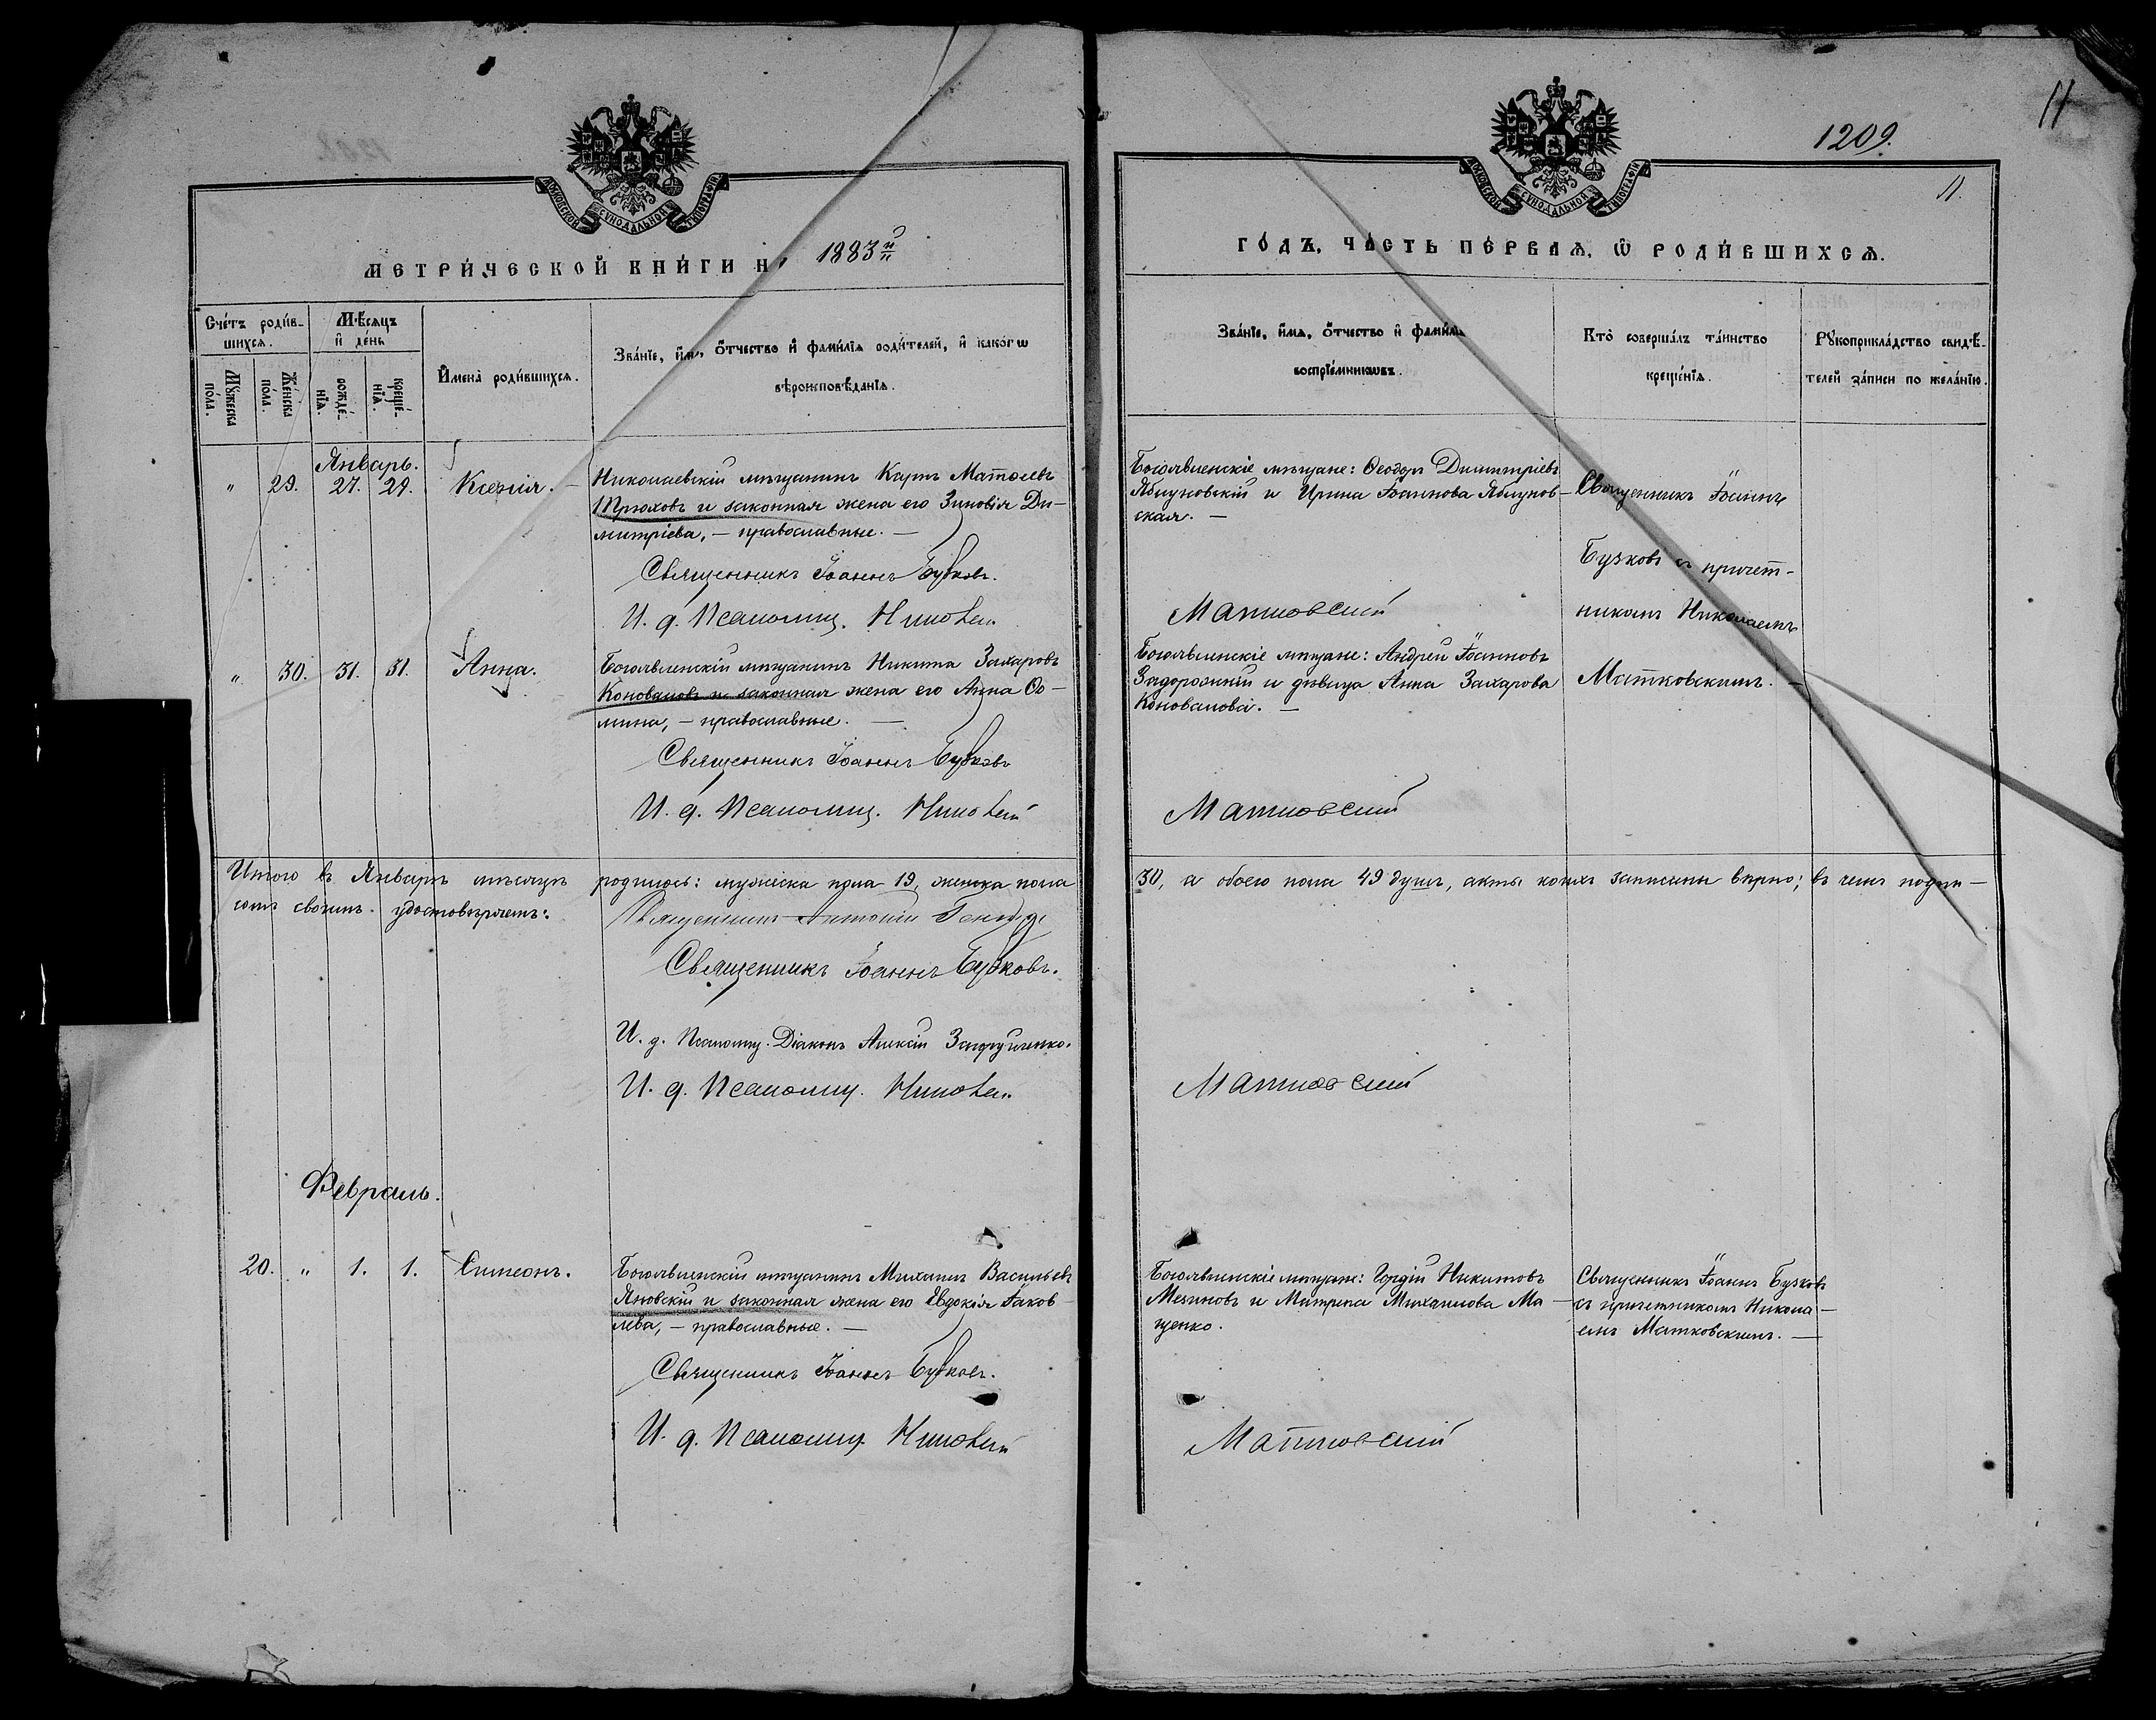 11
1209.
11.
МОСКОВСКОЙ СѴНОДАЛЬНОЙ ТИПОГРАФІИ
МОСКОВСКОЙ СѴНОДАЛЬНОЙ ТИПОГРАФІИ
МЕТРИ́ЧЕСКОЙ КНИ́ГИ НА 1883й
ГО́ДЪ, ЧА́СТЬ ПЕ́РВАѦ, Ѿ РОДИ́ВШИХСѦ.
Сче́тъ роди́в-
шихсѧ.
Мꙋ́жеска по́ла.
Же́нска по́ла.
Мѣ́сѧцъ
и҆ де́нь
рожде́-
нїѧ.
креще́-
нїѧ.
И҆мена̀ роди́вшихсѧ.
Зва́нїе, и҆́мѧ, ѻ҆́тчество и҆ фами́лїѧ роди́телей, и҆ како́гѡ
вѣроисповѣ́данїѧ.
Зва́нїе, и҆́мѧ, ѻ҆́тчество и҆ фами́лїѧ
воспрїе́мникѡвъ.
Кто̀ соверша́лъ та́инство
креще́нїѧ.
Рꙋкоприкла́дство свидѣ́-
телей за́писи по жела́нїю.
Январь.
" 29. 27. 29. Ксенія.
Николаевскій мѣщанинъ Карпъ Матѳеевъ
Прюховъ и законная жена его Зиновія Ди-
митріева, — православные. —
Священникъ Іоаннъ Бузковъ.
И. д. Псаломщ. Николай
Богоявленскіе мѣщане: Ѳеодоръ Димитріевъ
Яблуновскій и Ирина Іоаннова Яблунов-
ская. —
Матковский
Священникъ Іоаннъ
Бузковъ съ причет-
никомъ Николаемъ
Матковскимъ. —
" 30. 31. 31. Анна.
Богоявленскій мѣщанинъ Никита Захаровъ
Коноваловъ и законная жена его Анна Ѳо-
мина, — православные. —
Священникъ Іоаннъ Бузковъ
И. д. Псаломщ. Николай
Богоявленскіе мѣщане: Андрей Іоанновъ
Задорожній и дѣвица Анна Захарова
Коновалова. —
Матковский
Итого въ Январѣ мѣсяцѣ родилось: мужеска пола 19, женска пола
30, а обоего пола 49 душъ, акты коихъ записаны вѣрно; въ чемъ подпи-
сомъ своимъ удостовѣряемъ:
Священникъ Антоній
Священникъ Іоаннъ Бузковъ.
И. д. Псаломщ. Діаконъ Алексій
И. д. Псаломщ. Николай
Матковский
Февраль.
20. " 1. 1. Симеонъ.
Богоявленскій мѣщанинъ Михаилъ Васильевъ
Яновскій и законная жена его Евдокія Іаков-
лева, — православные. —
Священникъ Іоаннъ Бузковъ.
И. д. Псаломщ. Николай
Богоявленскіе мѣщане: Гордій Никитовъ
Мезиновъ и Матрена Михаилова Ма-
щенко.
Матковский
Священникъ Іоаннъ Бузковъ
съ причетникомъ Никола-
емъ Матковскимъ. —